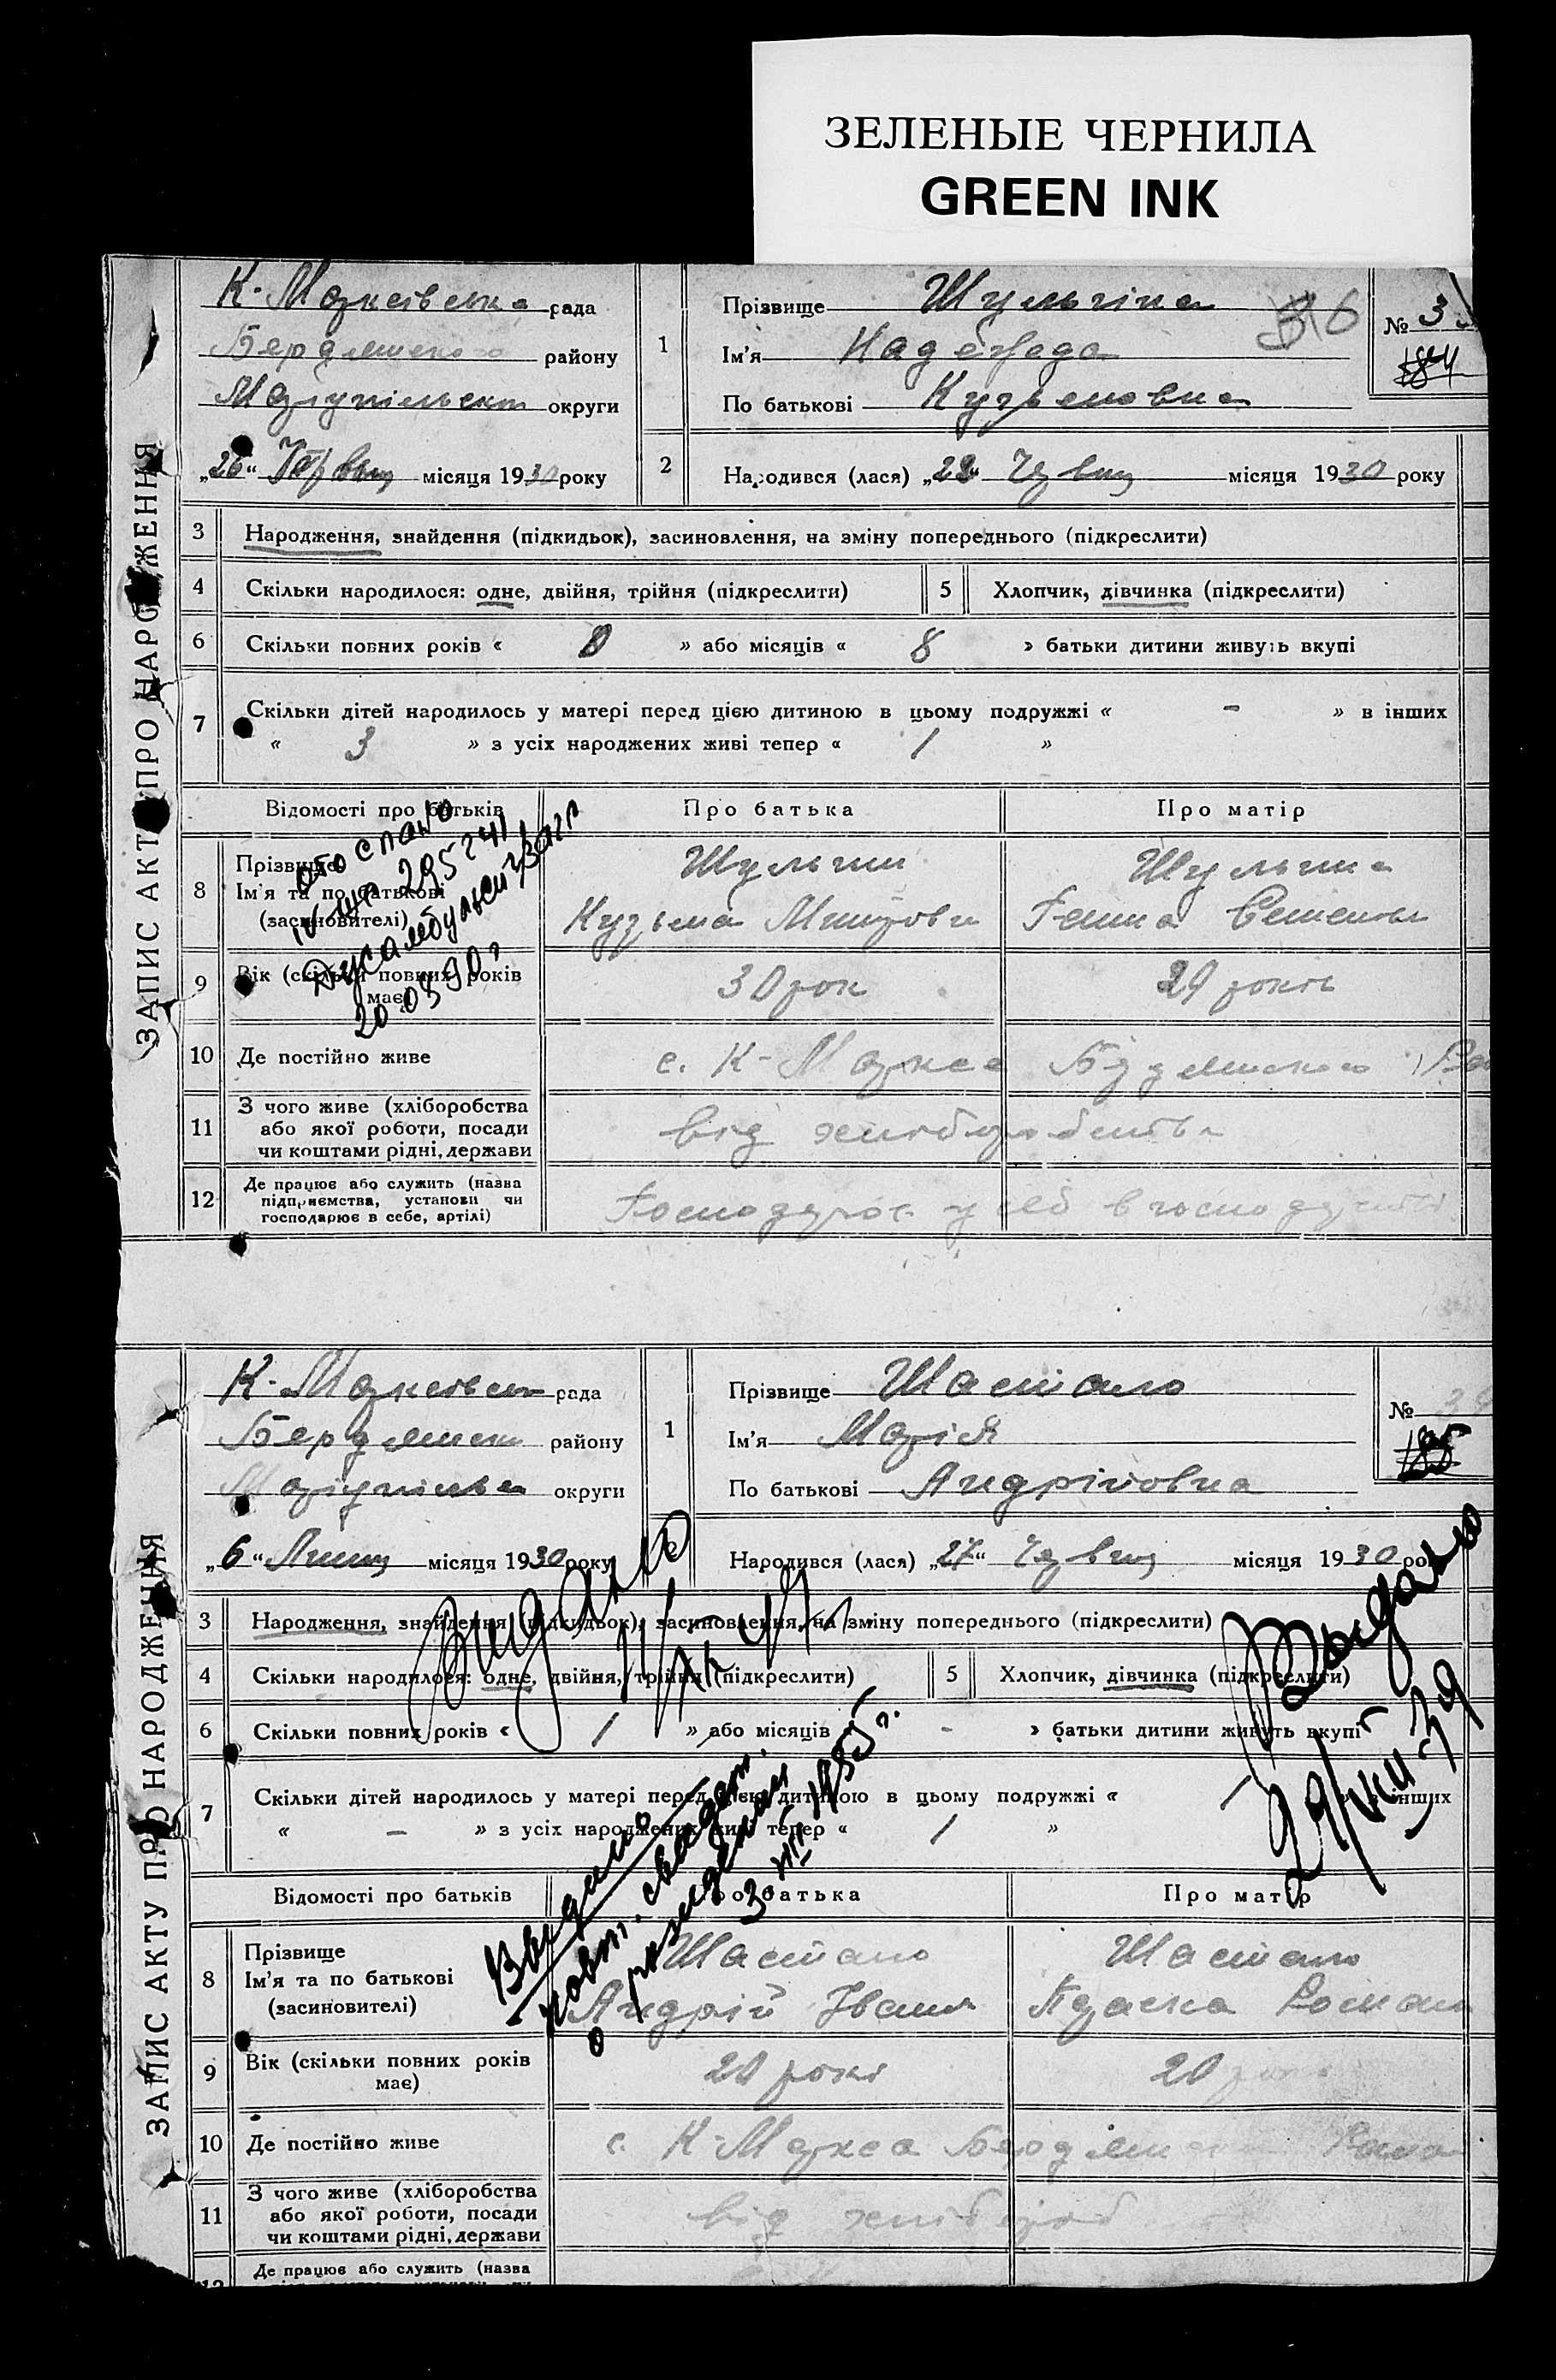 ЗЕЛЕНЫЕ ЧЕРНИЛА
GREEN INK
ЗАПИС АКТУ ПРО НАРОДЖЕННЯ
К-Марксівська рада
Бердянського району
Маріупільськ округи
„26“ Червня місяця 1930 року
1
Прізвище Шульгіна
36
Ім'я Надежда
По батькові Кузьмовна
№ 3
184
2
Народився (лася) „22“ Червня місяця 1930 року
3 Народження, знайдення (підкидьок), засиновлення, на зміну попереднього (підкреслити)
4 Скільки народилося: одне, двійня, трійня (підкреслити) 5 Хлопчик, дівчинка (підкреслити)
6 Скільки повних років « 0 » або місяців « 8 » батьки дитини живуть вкупі
7 Скільки дітей народилось у матері перед цією дитиною в цьому подружжі « - » в інших
« 3 » з усіх народжених живі тепер « 1 »
Відомості про батьків Про батька Про матір
8 Прізвище
Ім'я та по батькові
(засиновителі)
Шульгин
Кузьма
Шульгина
Семенов
IV 295241
20.03.90 г
9 Вік (скільки повних років
має)
30 рок 29 років
10 Де постійно живе с. К-Маркса
11 З чого живе (хліборобства
або якої роботи, посади
чи коштами рідні, держави
від хліборобства
12 Де працює або служить (назва
підприємства, установи чи
господарює в себе, артілі)
Господарює у себе в господарстві
ЗАПИС АКТУ ПРО НАРОДЖЕННЯ
К-Марксівськ рада
Бердянськ району
Маріупільськ округи
„6“ Липня місяця 1930 року
1
Прізвище Шастало
Ім'я Марія
По батькові Андріювна
№ 34
185
Народився (лася) „27“ Червня місяця 1930 ро
3 Народження, знайдення (підкидьок), засиновлення, на зміну попереднього (підкреслити)
4 Скільки народилося: одне, двійня, трійня (підкреслити) 5 Хлопчик, дівчинка (підкреслити)
6 Скільки повних років « 1 » або місяців « - » батьки дитини живуть вкупі
7 Скільки дітей народилось у матері перед цією дитиною в цьому подружжі « інших
« — » з усіх народжених живі тепер « 1 »
Видано
Выдано
29/ 39
Выдано
повт. свидет.
о рождении
3. XII 1955 г.
Відомості про батьків Про батька Про матір
8 Прізвище
Ім'я та по батькові
(засиновителі)
Шастало
Андрій Іванов
Шастало
Роман
9 Вік (скільки повних років
має)
20 рокі 20
10 Де постійно живе с. К-Маркса
11 З чого живе (хліборобства
або якої роботи, посади
чи коштами рідні, держави
від хлібороб
12 Де працює або служить (назва